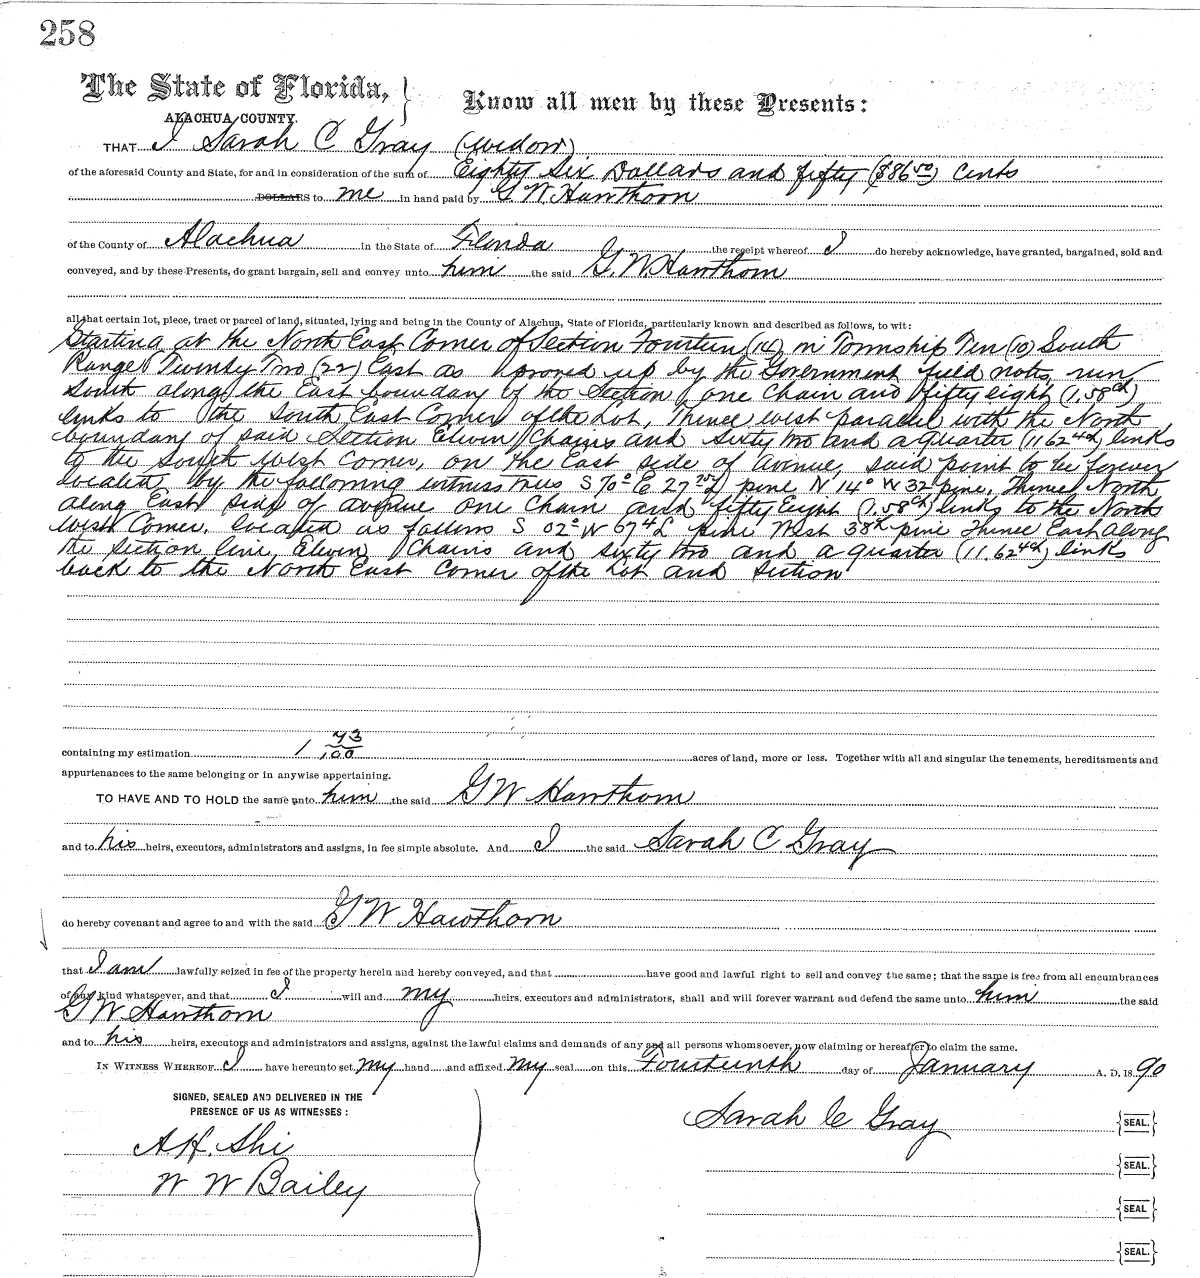 258
The State of Florida, } Know all men by these Presents:
ALACHUA COUNTY.
THAT I Sarah C Gray (widow)
of the aforesaid County and State, for and in consideration of the sum of Eighty Six Dollars and fifty ($86 50) Cents
DOLLARS to me in hand paid by G W Hawthorn
of the County of Alachua in the State of Florida the receipt whereof I do hereby acknowledge, have granted, bargained, sold and
conveyed, and by these Presents, do grant bargain, sell and convey unto him the said G. W. Hawthorn
all that certain lot, piece, tract or parcel of land, situated, lying and being in the County of Alachua, State of Florida, particularly known and described as follows, to wit:
Starting at the North East Corner of Section Fourteen (14) in Township Ten (10) South
Range Twenty Two (22) East as proved up by the Government field notes, run
South along the East boundary of the Section one Chain and fifty eight (1.58ch)
links to the South East Corner of the Lot, Thence west parallel with the North
boundary of said Section Eleven Chains and Sixty two and a quarter (11.62¼ch) links
to the South West Corner, on the East side of Avenue, said point to be forever
located by the following witness trees S 70° E 27 pine N 14° W 32 pine, Thence North
along East side of avenue one Chain and fifty Eight (1.58ch) links to the North
West Corner. located as follows S 02° W 67 L pine West 38 pine Thence East along
the section line, Eleven Chains and sixty two and a quarter (11.62¼ch) links
back to the North East Corner of the Lot and Section
containing my estimation 1 43/100 acres of land, more or less. Together with all and singular the tenements, hereditaments and
appurtenances to the same belonging or in anywise appertaining.
TO HAVE AND TO HOLD the same unto him the said G W Hawthorn
and to his heirs, executors, administrators and assigns, in fee simple absolute. And I the said Sarah C. Gray
do hereby covenant and agree to and with the said G W Hawthorn
that I am lawfully seized in fee of the property herein and hereby conveyed, and that have good and lawful right to sell and convey the same; that the same is free from all encumbrances
of any kind whatsoever, and that I will and my heirs, executors and administrators, shall and will forever warrant and defend the same unto him the said
G W Hawthorn
and to his heirs, executors and administrators and assigns, against the lawful claims and demands of any and all persons whomsoever, now claiming or hereafter to claim the same.
IN WITNESS WHEREOF I have hereunto set my hand and affixed my seal on this Fourteenth day of January A. D. 1890
SIGNED, SEALED AND DELIVERED IN THE
PRESENCE OF US AS WITNESSES:
Sarah C Gray {SEAL.}
A H. Shi
{SEAL.}
W W Bailey
{SEAL}
{SEAL.}